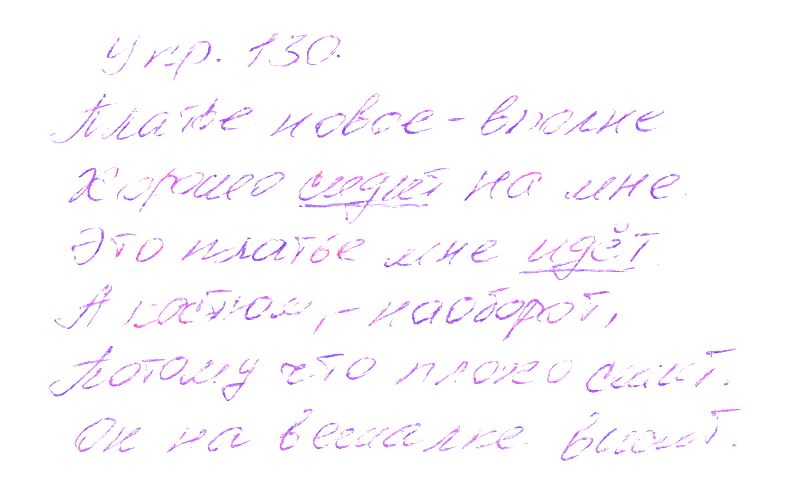 Упр. 130.
Платье новое - вполне
Хорошо сидит на мне.
Это платье мне идёт.
А костюм, - наоборот,
Потому что плохо сшит.
Он на вешалке висит.